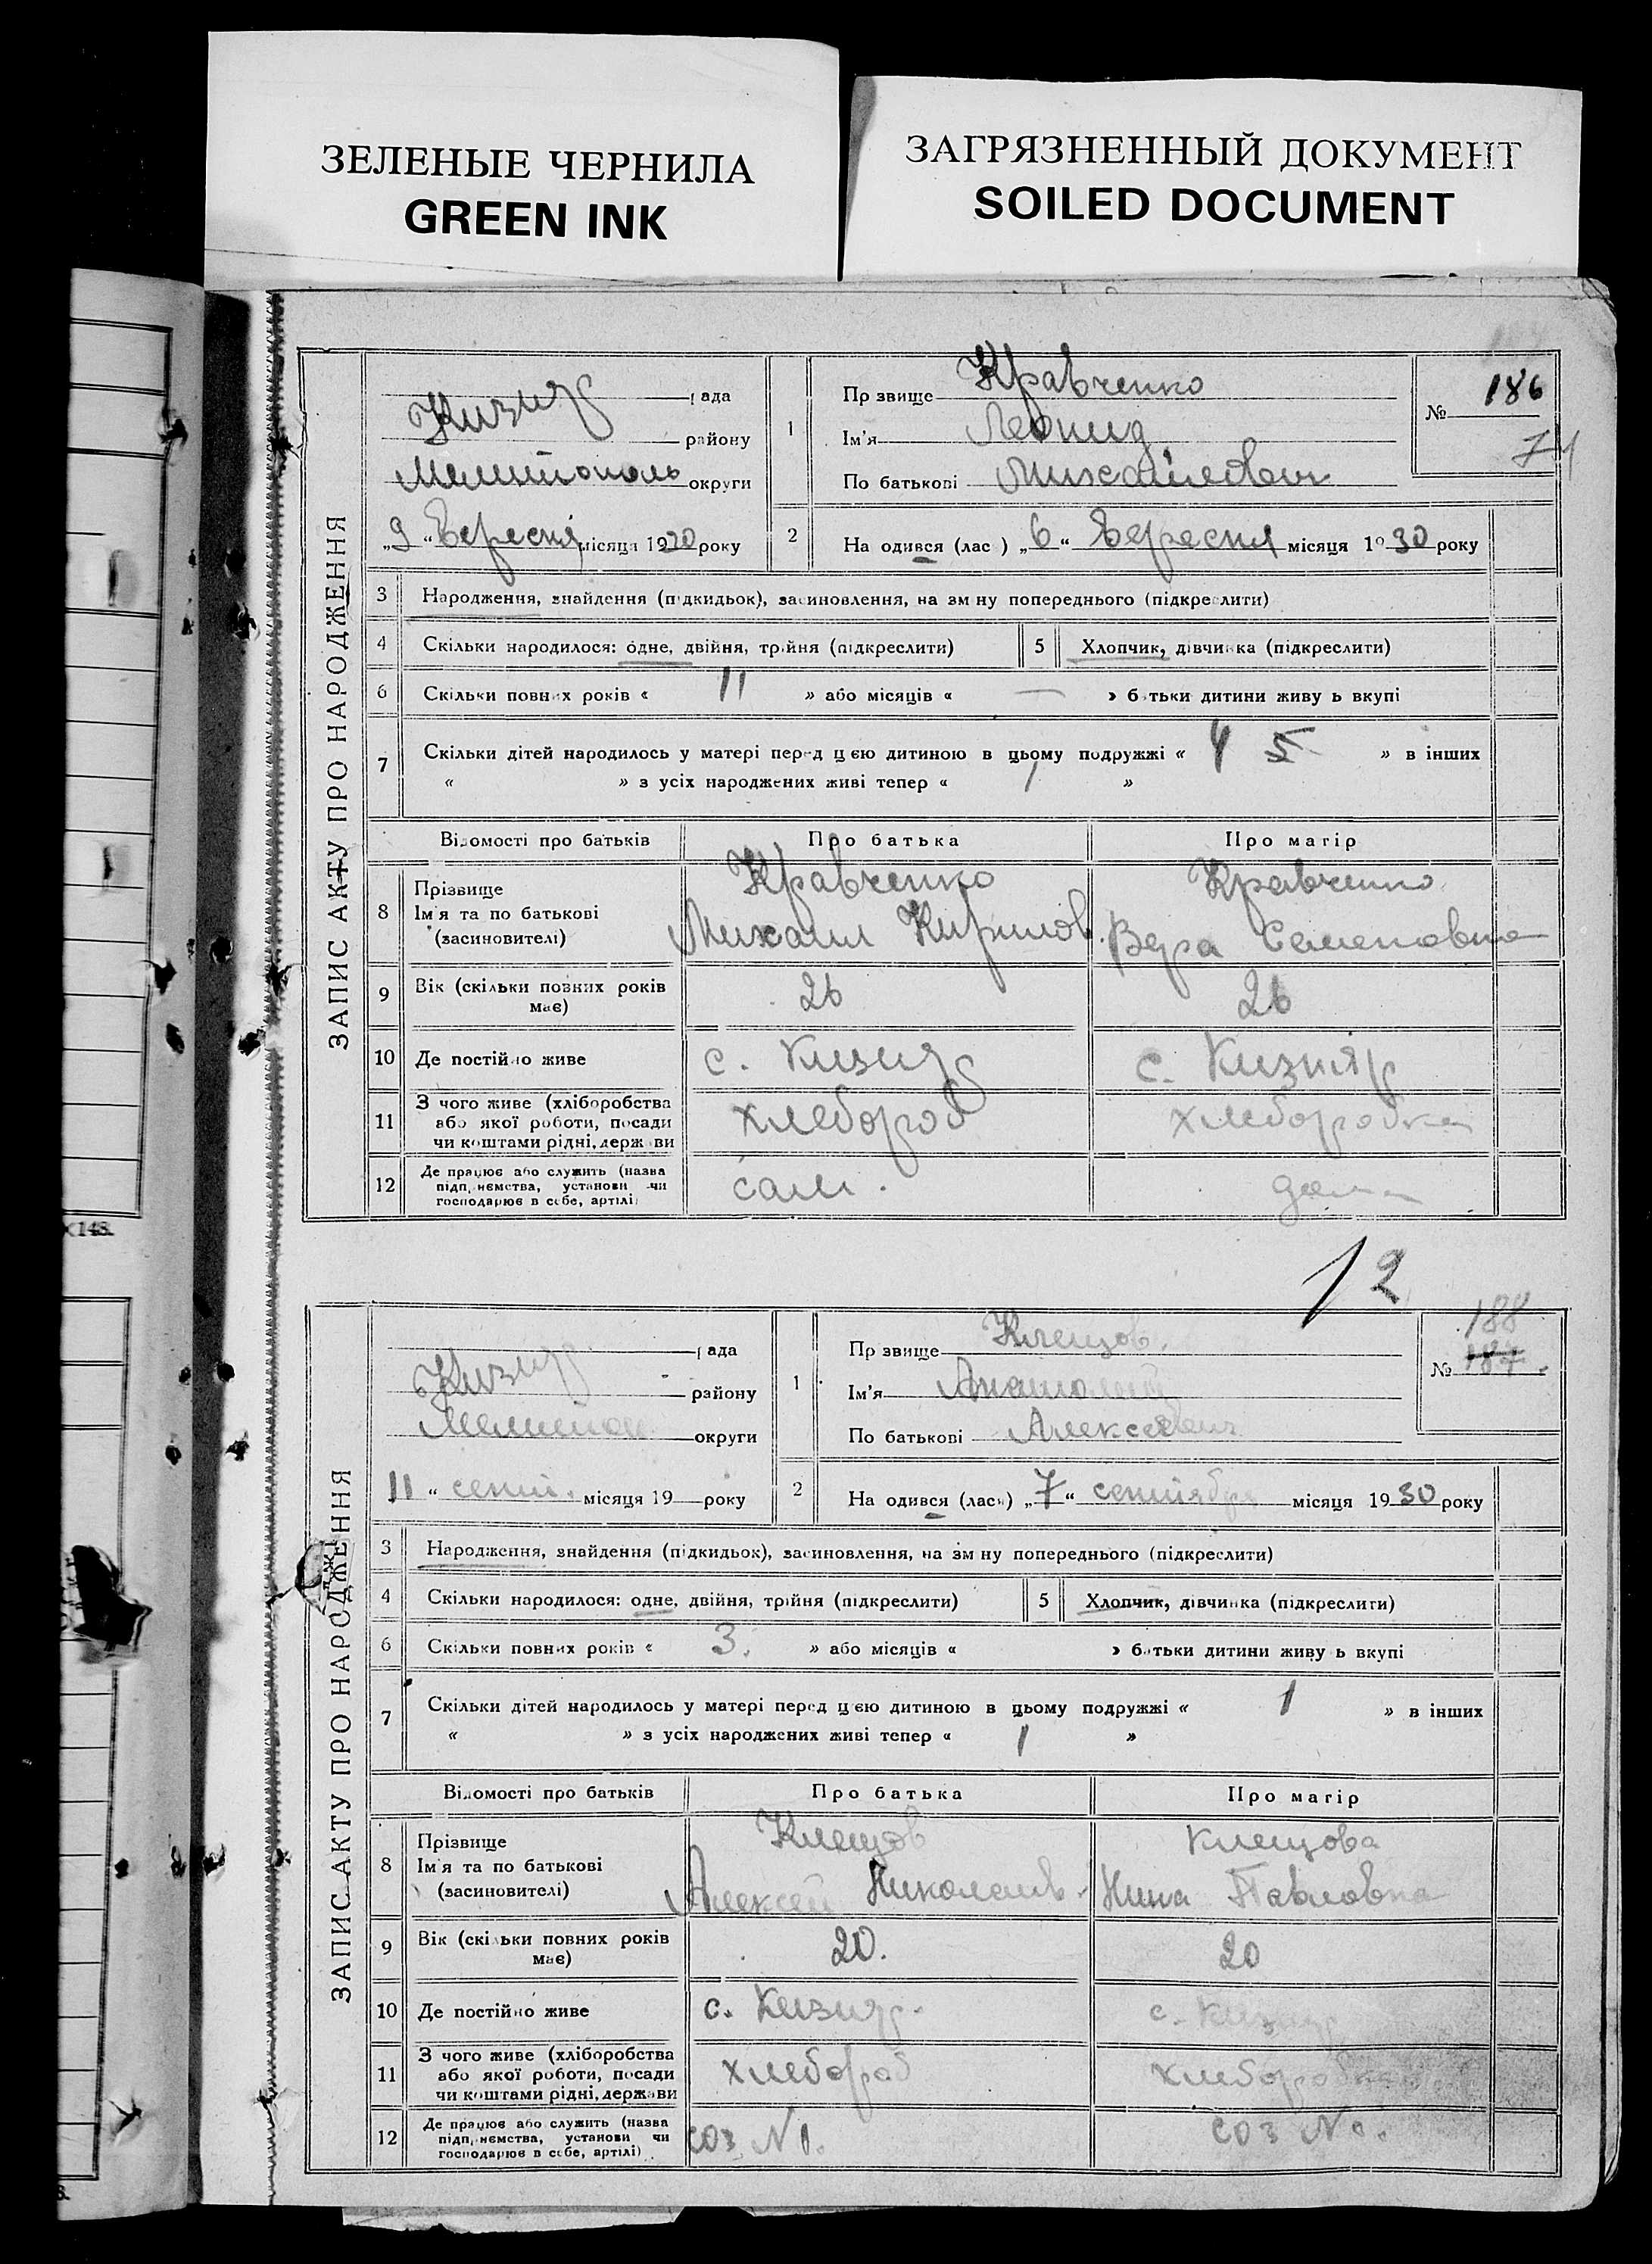 ЗЕЛЕНЫЕ ЧЕРНИЛА
GREEN INK
ЗАГРЯЗНЕННЫЙ ДОКУМЕНТ
SOILED DOCUMENT
ЗАПИС АКТУ ПРО НАРОДЖЕННЯ
Кизияр рада
району
Мелитополь округи
„9“ Вересня місяця 1930 року
1 Прізвище Кравченко
Ім'я Леонид
По батькові Михайлович
№ 186
71
2 Народився (лась) „6“ Вересня місяця 1930 року
3 Народження, знайдення (підкидьок), засиновлення, на зміну попереднього (підкреслити)
4 Скільки народилося: одне, двійня, трійня (підкреслити) 5 Хлопчик, дівчинка (підкреслити)
6 Скільки повних років « 11 » або місяців « — » батьки дитини живуть вкупі
7 Скільки дітей народилось у матері перед цією дитиною в цьому подружжі « 4 5 » в інших
« » з усіх народжених живі тепер « 1 »
Відомості про батьків Про батька Про матір
8 Прізвище Кравченко Кравченко
Ім'я та по батькові Михаил Кирилов. Вера Семеновна
(засиновителі)
9 Вік (скільки повних років має) 26 26
10 Де постійно живе с. Кизияр с. Кизияр
11 З чого живе (хліборобства хлебороб хлеборобка
або якої роботи, посади
чи коштами рідні, держави
12 Де працює або служить (назва сам. дома
підприємства, установи чи
господарює в себе, артілі)
12
ЗАПИС АКТУ ПРО НАРОДЖЕННЯ
Кизияр рада
району
Мелитоп округи
11 “ сент. місяця 19 року
1 Прізвище Клещов.
Ім'я Анатолий
По батькові Алексеевич
188
№ 187.
2 Народився (лась) „7“ сентября місяця 1930 року
3 Народження, знайдення (підкидьок), засиновлення, на зміну попереднього (підкреслити)
4 Скільки народилося: одне, двійня, трійня (підкреслити) 5 Хлопчик, дівчинка (підкреслити)
6 Скільки повних років « 3. » або місяців « » батьки дитини живуть вкупі
7 Скільки дітей народилось у матері перед цією дитиною в цьому подружжі « 1 » в інших
« » з усіх народжених живі тепер « 1 »
Відомості про батьків Про батька Про матір
8 Прізвище Клещов Клещова
Ім'я та по батькові Алексей Николаев. Нина Павловна
(засиновителі)
9 Вік (скільки повних років має) 20. 20
10 Де постійно живе с. Кизияр. с. Кизияр
11 З чого живе (хліборобства хлебороб хлеборобка
або якої роботи, посади
чи коштами рідні, держави
12 Де працює або служить (назва соз N 1. соз N 1.
підприємства, установи чи
господарює в себе, артілі)
х 148.